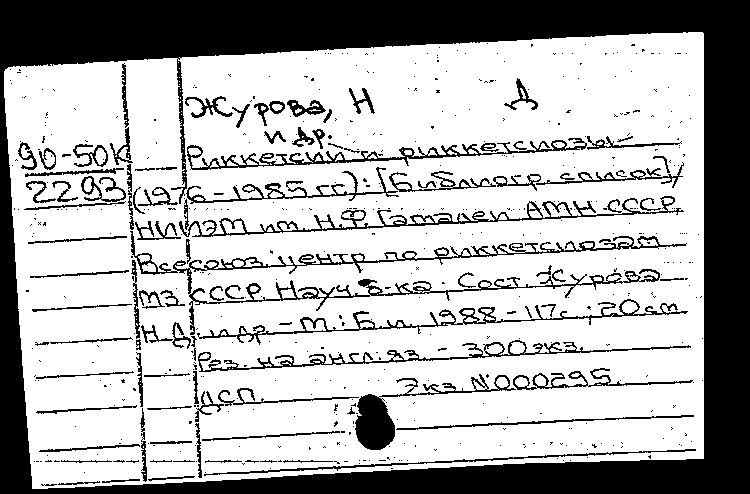 Журова, Н Д
и др.
90-50К Риккетсии и риккетсиозы
2293 (1976-1985 гг): [Библиогр. список]/
НИИЭМ им. Н.Ф. Гамалеи АМН СССР.
Всесоюз. центр по риккетсиозам
МЗ СССР. Науч. б-ка; Сост. Журова
Н.Д. и др. - М.: Б.и., 1988. - 117с.; 20см
Рез. на англ. яз. - 300экз.
ДСП. Экз. №000295.